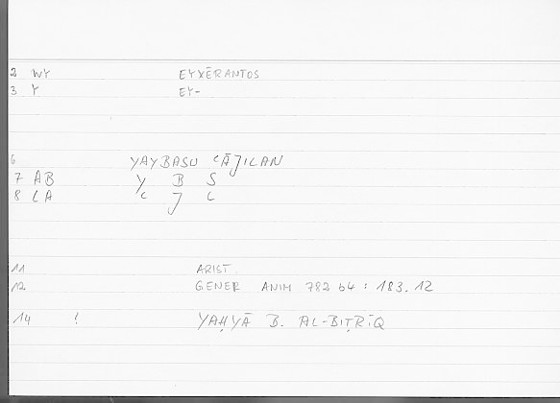 2 WY EYXĒRANTOS
3 Y EY-
6 YAYBASU ʿĀJILAN
7 AB Y B S
8 LA ʿ J L
11 ARIST
12 GENER ANIM 782 b4 : 183.12
14 ! YAḤYĀ B. AL-BIṬRĪQ